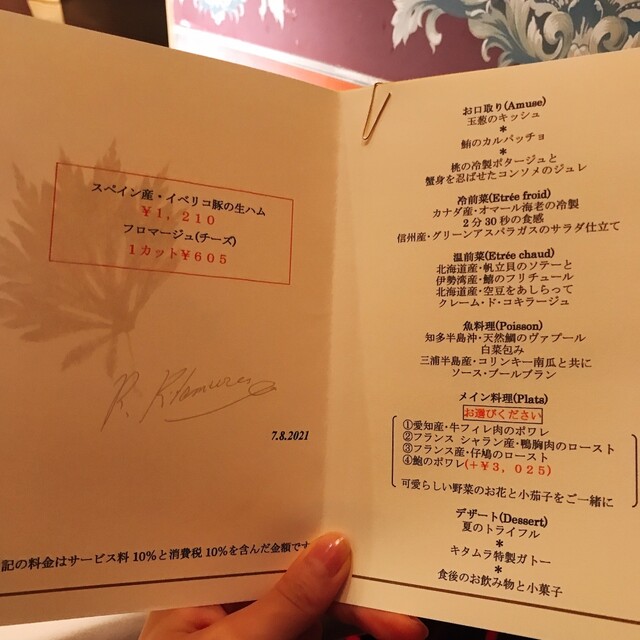 スペイン産・イベリコ豚の生ハム
￥１，２１０
フロマージュ(チーズ)
１カット￥６０５
7.8.2021
記の料金はサービス料10％と消費税10％を含んだ金額です
お口取り(Amuse)
玉葱のキッシュ
＊
鮪のカルパッチョ
＊
桃の冷製ポタージュと
蟹身を忍ばせたコンソメのジュレ
冷前菜(Etrée froid)
カナダ産・オマール海老の冷製
２分30秒の食感
信州産・グリーンアスパラガスのサラダ仕立て
温前菜(Etrée chaud)
北海道産・帆立貝のソテーと
伊勢湾産・鱚のフリチュール
北海道産・空豆をあしらって
クレーム・ド・コキラージュ
魚料理(Poisson)
知多半島沖・天然鯛のヴァプール
白菜包み
三浦半島産・コリンキー南瓜と共に
ソース・ブールブラン
メイン料理(Plats)
お選びください
①愛知産・牛フィレ肉のポワレ
②フランス シャラン産・鴨胸肉のロースト
③フランス産・仔鳩のロースト
④鮑のポワレ(+￥3，025)
可愛らしい野菜のお花と小茄子をご一緒に
デザート(Dessert)
夏のトライフル
＊
キタムラ特製ガトー
＊
食後のお飲み物と小菓子